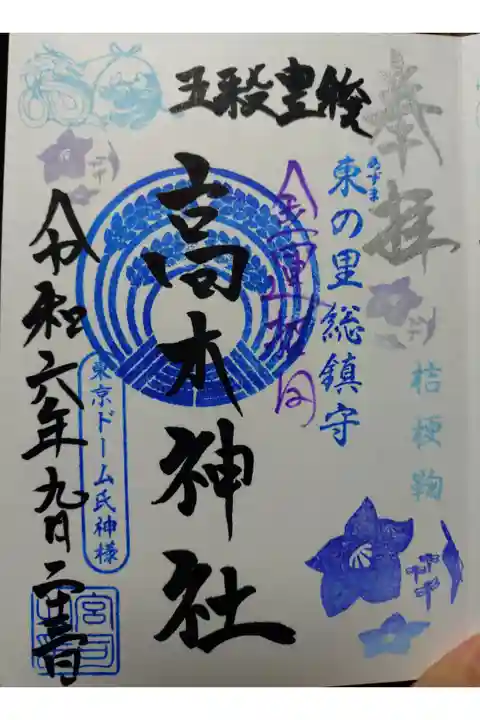 奉拝
桔梗鞠
あずま
東の里総鎮守
金運
五穀豊穣
高木神社
東京ドーム氏神様
令和六年九月二十三日
宮司